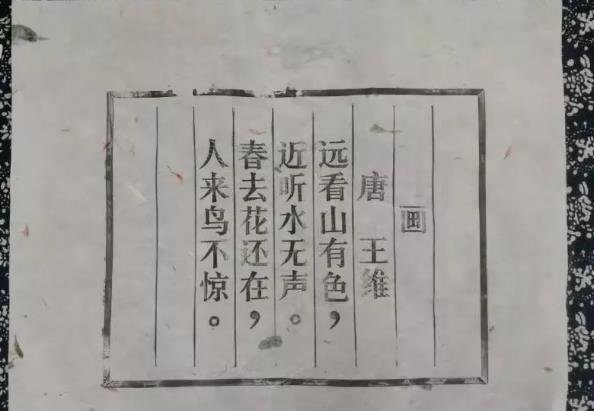 画
唐 王维
远看山有色，
近听水无声。
春去花还在，
人来鸟不惊。